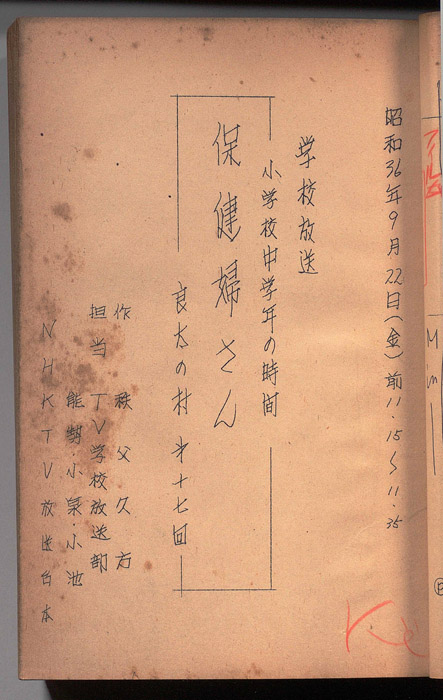 昭和36年9月22日(金)前11.15〜11.35
学校放送
小学校中学年の時間
保健婦さん
良太の村 才十七回
作 秩父久方
担当 TV学校放送部
能勢・小泉・小池
NHKTV放送台本